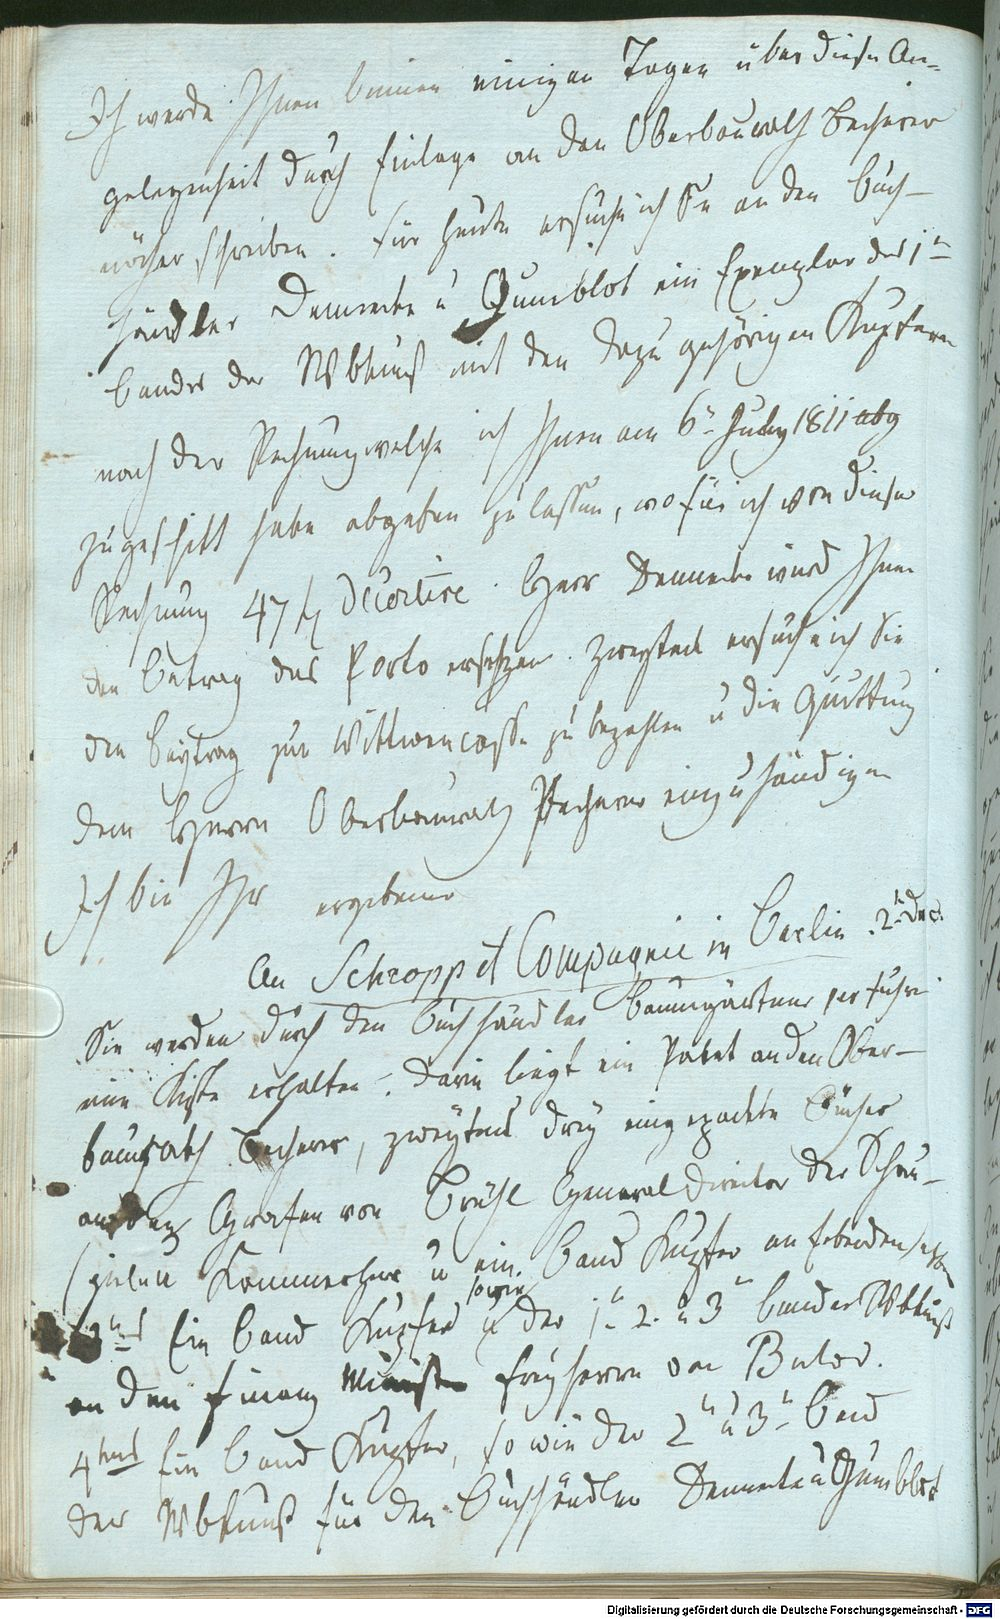 Ich werde Ihnen binnen einigen Tagen über diese An=
gelegenheit durch Einlage an den Oberbaurath Becherer
näher schreiben. Für heute ersuche ich Sie an den Buch-
händler Demmecke u Qumblot ein Exemplar des 1n
bandes der Wbkunst mit den dazu gehörigen Kupfern
nach der Rechnung welche ich Ihnen am 6n July 1811 abg
zugeschikt habe abgeben zu lassen, wofür ich von dieser
Rechnung 47 decortire. Herr Demmecke wird Ihnen
den Betrag des Porto ersetzen. Zweytens ersuche ich Sie
den Beytrag zur Wittwencasse zu bezahlen u die Quittung
dem Herrn Oberbaurath Becherer einzuhändigen
Ich bin Ihr ergebener
An Schropp et Compagnie in Berlin. 2n Dec.
Sie werden durch den Buchhändler Baumgärtner per fuhre
eine Kiste erhalten. darin liegt ein Paket an den Ober-
baurath Becherer, zweytens drey eingepackte Bücher
an den Grafen von Brühl General Director der Schau-
spiele Kammerherr u ein Band Kupfer an Ebendenselben
3tens Ein Band Kupfer sowie der 1n 2n u 3n band der Wbkunst
an den Finanz Minister Freyherrn von Bulow.
4tens Ein Band Kupfer, so wie der 2n u 3n Band
der Wbkunst für den Buchhändler Demmecke u Qumblot
Digitalisierung gefördert durch die Deutsche Forschungsgemeinschaft - DFG